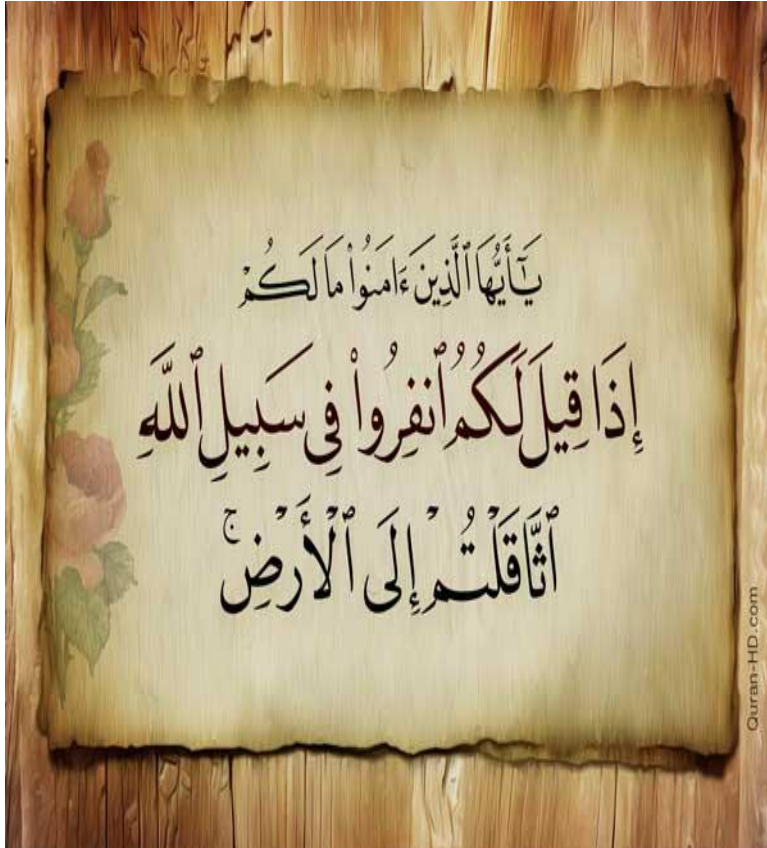 يَـٰٓأَيُّهَا ٱلَّذِينَ ءَامَنُوا۟ مَا لَكُمْ
إِذَا قِيلَ لَكُمُ ٱنفِرُوا۟ فِى سَبِيلِ ٱللَّهِ
ٱثَّاقَلْتُمْ إِلَى ٱلْأَرْضِ ۚ
Quran-HD.com